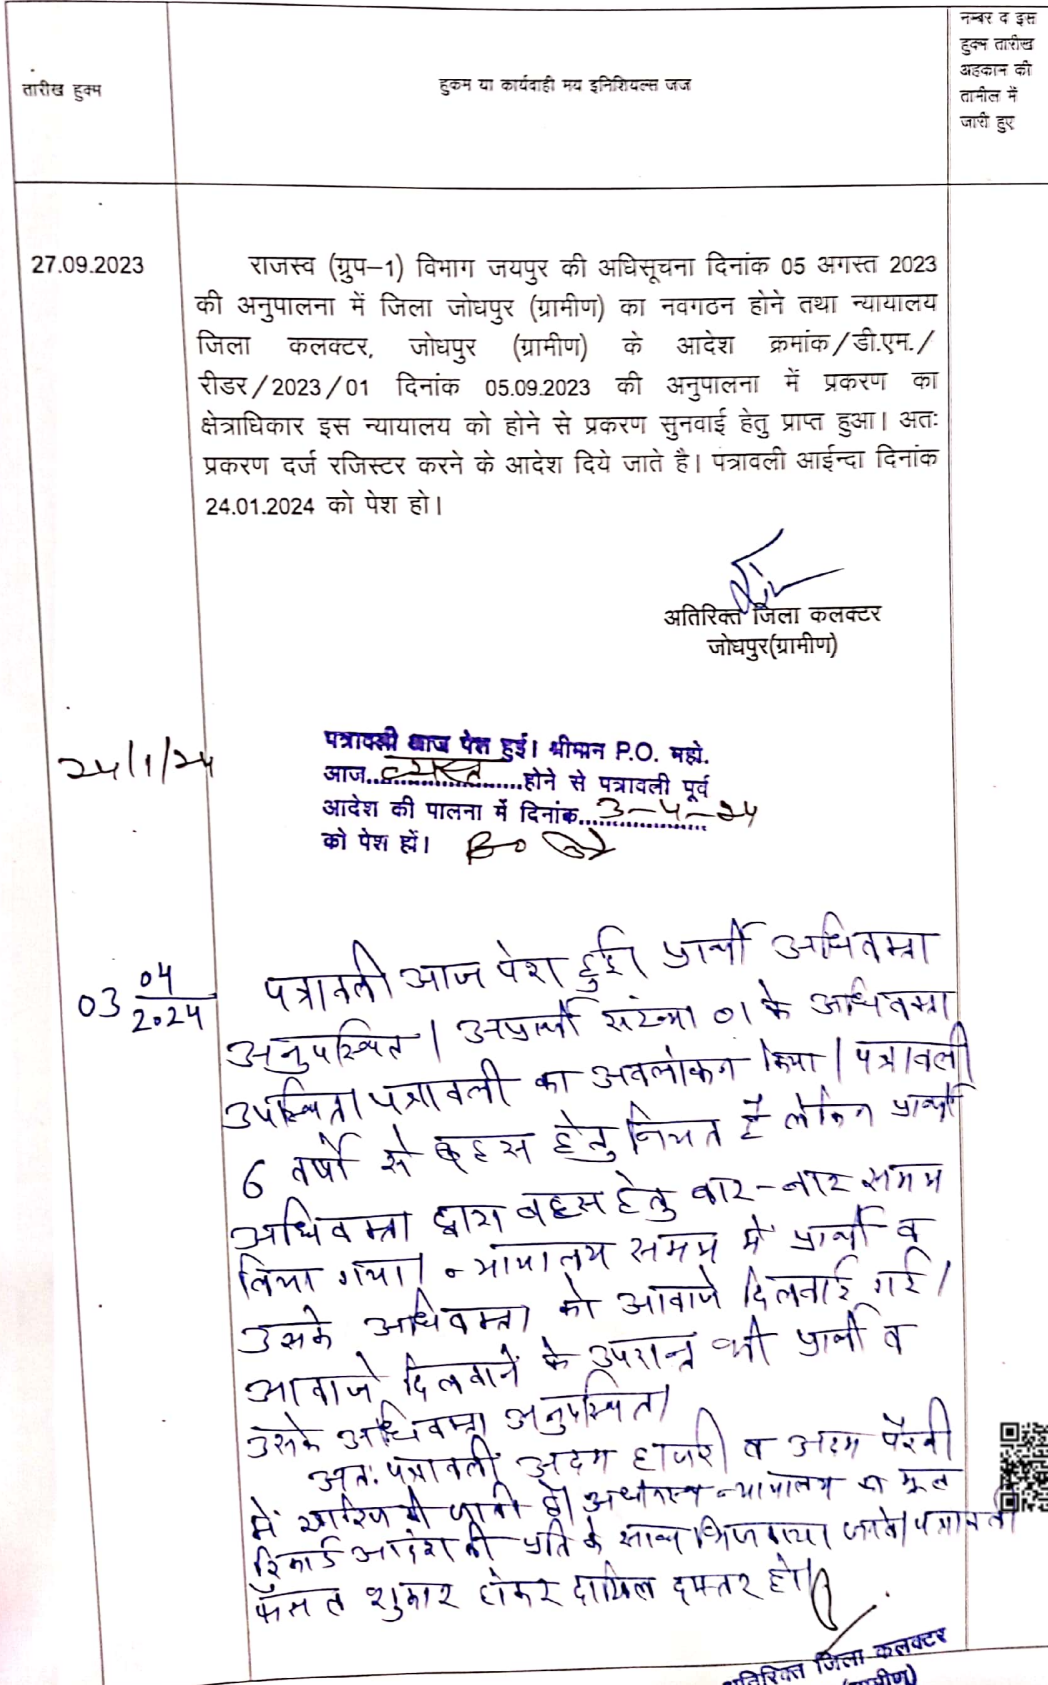 तारीख हुक्म
हुकम या कार्यवाही मय इनिशियल्स जज
नम्बर द इस
हुक्म तारीख
अहकाम की
तामील में
जारी हुए
27.09.2023
राजस्व (ग्रुप-1) विभाग जयपुर की अधिसूचना दिनांक 05 अगस्त 2023
की अनुपालना में जिला जोधपुर (ग्रामीण) का नवगठन होने तथा न्यायालय
जिला कलक्टर, जोधपुर (ग्रामीण) के आदेश क्रमांक/डी.एम./
रीडर/2023/01 दिनांक 05.09.2023 की अनुपालना में प्रकरण का
क्षेत्राधिकार इस न्यायालय को होने से प्रकरण सुनवाई हेतु प्राप्त हुआ। अतः
प्रकरण दर्ज रजिस्टर करने के आदेश दिये जाते है। पत्रावली आईन्दा दिनांक
24.01.2024 को पेश हो।
अतिरिक्त जिला कलक्टर
जोधपुर(ग्रामीण)
24/1/24
पत्रावली आज पेश हुई। श्रीमान P.O. महो.
आज....व्यस्त....होने से पत्रावली पूर्व
आदेश की पालना में दिनांक...3-4-24
को पेश हों।
03 04/2024
पत्रावली आज पेश हुई। प्रार्थी अधिवक्ता
अनुपस्थित। अप्रार्थी संख्या 01 के अधिवक्ता
उपस्थित। पत्रावली का अवलोकन किया। पत्रावली
6 वर्षों से बहस हेतु नियत है लेकिन प्रार्थी
अधिवक्ता द्वारा बहस हेतु बार-बार समय
लिया गया। न्यायालय समय में प्रार्थी व
उसके अधिवक्ता को आवाजे दिलवाई गई।
आवाजे दिलवाने के उपरान्त भी प्रार्थी व
उसके अधिवक्ता अनुपस्थित।
अतः पत्रावली अदम हाजरी व अदम पैरवी
में खारिज की जाती है। अधीनस्थ न्यायालय का मूल
रिकार्ड आदेश की प्रति के साथ भिजवाया जावे। पत्रावली
फैसल शुमार होकर दाखिल दफ्तर हो।
अतिरिक्त जिला कलक्टर